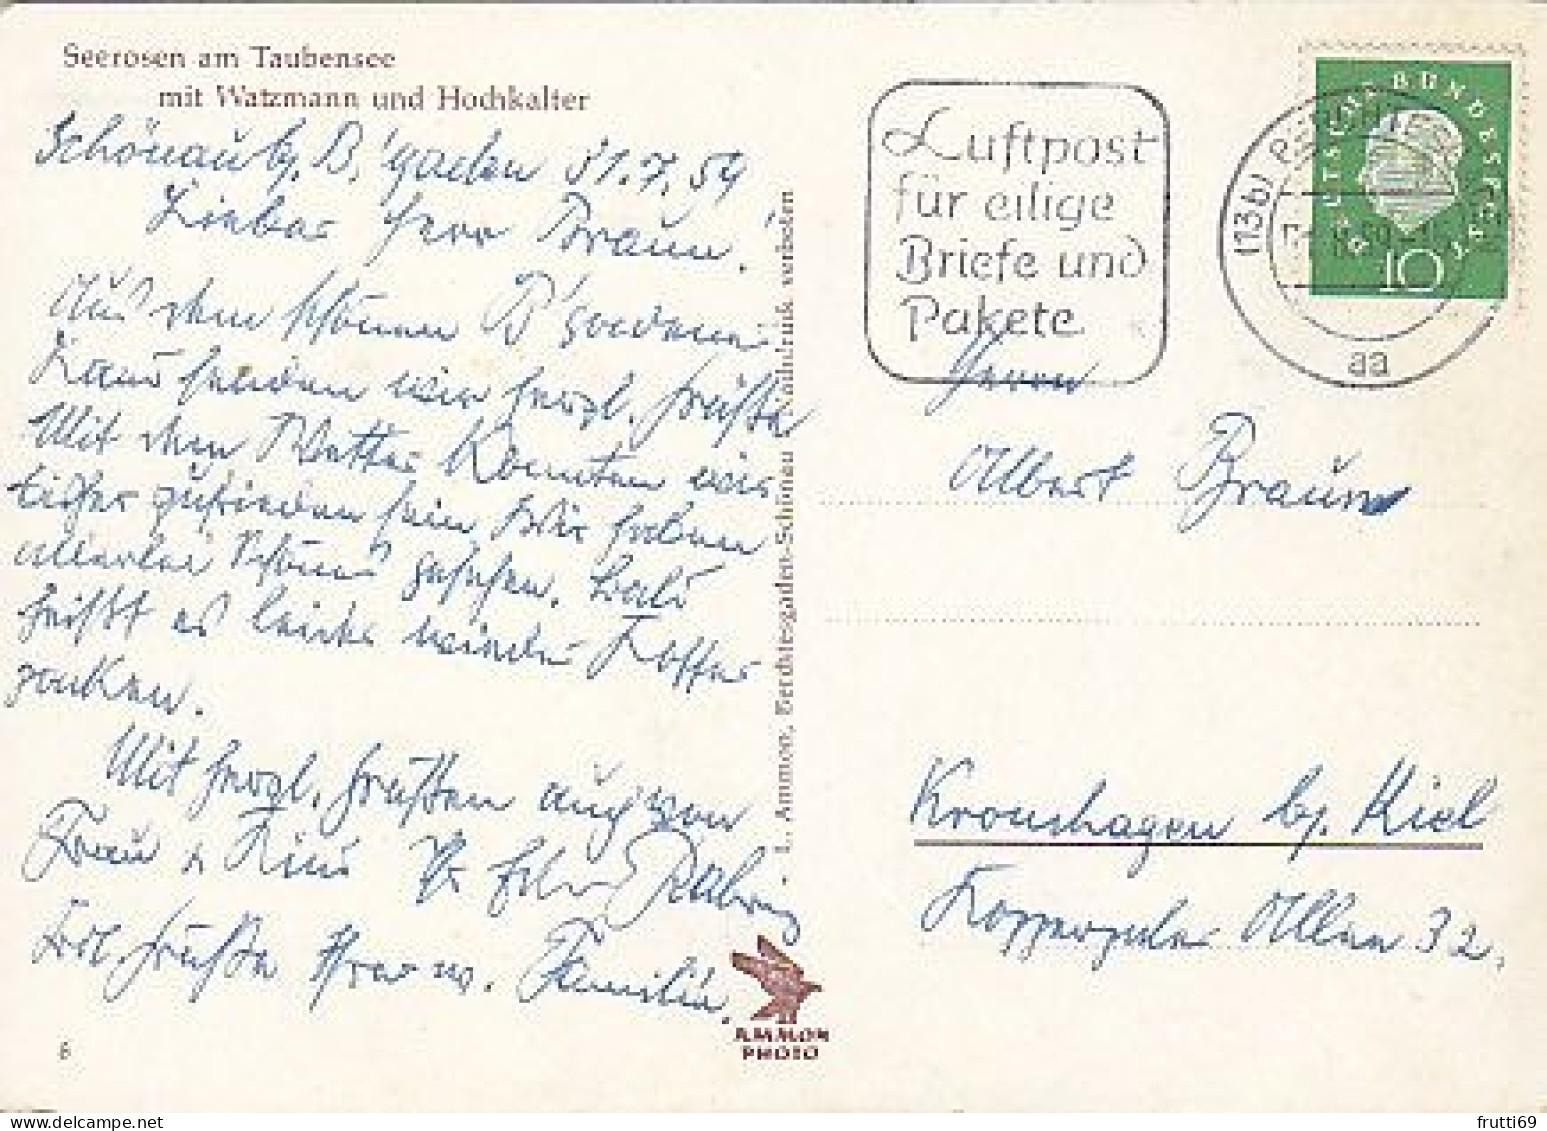 Seerosen am Taubensee
mit Watzmann und Hochkalter
Schönau b/. B,'gaden 31.7.59
Lieber Herr Braun!
Aus dem schönen B'gadener
Land senden wir herzl. Grüße
Mit dem Wetter konnten wir
bisher zufrieden sein Wir haben
allerlei Schönes gesehen. Bald
heißt es leider wieder Koffer
packen.
Mit herzl. Grüßen auch von
Frau u. Kind Ihr
Herzl. Grüße Ihrer w. Familie.
8
L. Ammon, Berchtesgaden-Schönau Nachdruck verboten
AMMON
PHOTO
Luftpost
für eilige
Briefe und
Pakete
(13b)
aa
DEUTSCHE BUNDESPOST
10
Herrn
Albert Braun
Kronshagen b/. Kiel
Kopperpahler Allee 32.
frutti69